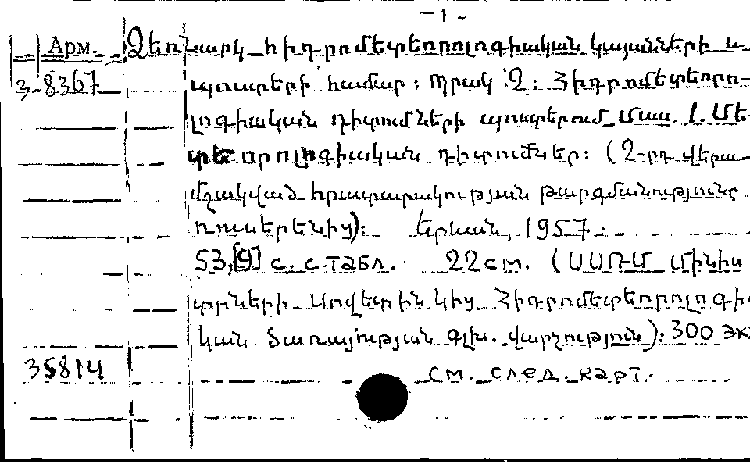 - 1 -
Арм. Ձեռնարկ հիդրոմետեոռոլոգիական կայանների և
3-8367 պոստերի համար: Պրակ 2: Հիդրոմետեորո-
լոգիական դիտումների պոստերում Մաս. 1. Մե-
տեորոլոգիական դիտումներ: (2-րդ վերա-
մշակված հրատարակության թարգմանությունը
ռուսերենից): Երևան, 1957.
53,[9] с. с табл. 22 см. (ՍՍՌՄ Մինիս
տրների Սովետին կից Հիդրոմետեոռոլոգիա
կան ծառայության գլխ. վարչություն): 300 эк
35814 см. след. карт.